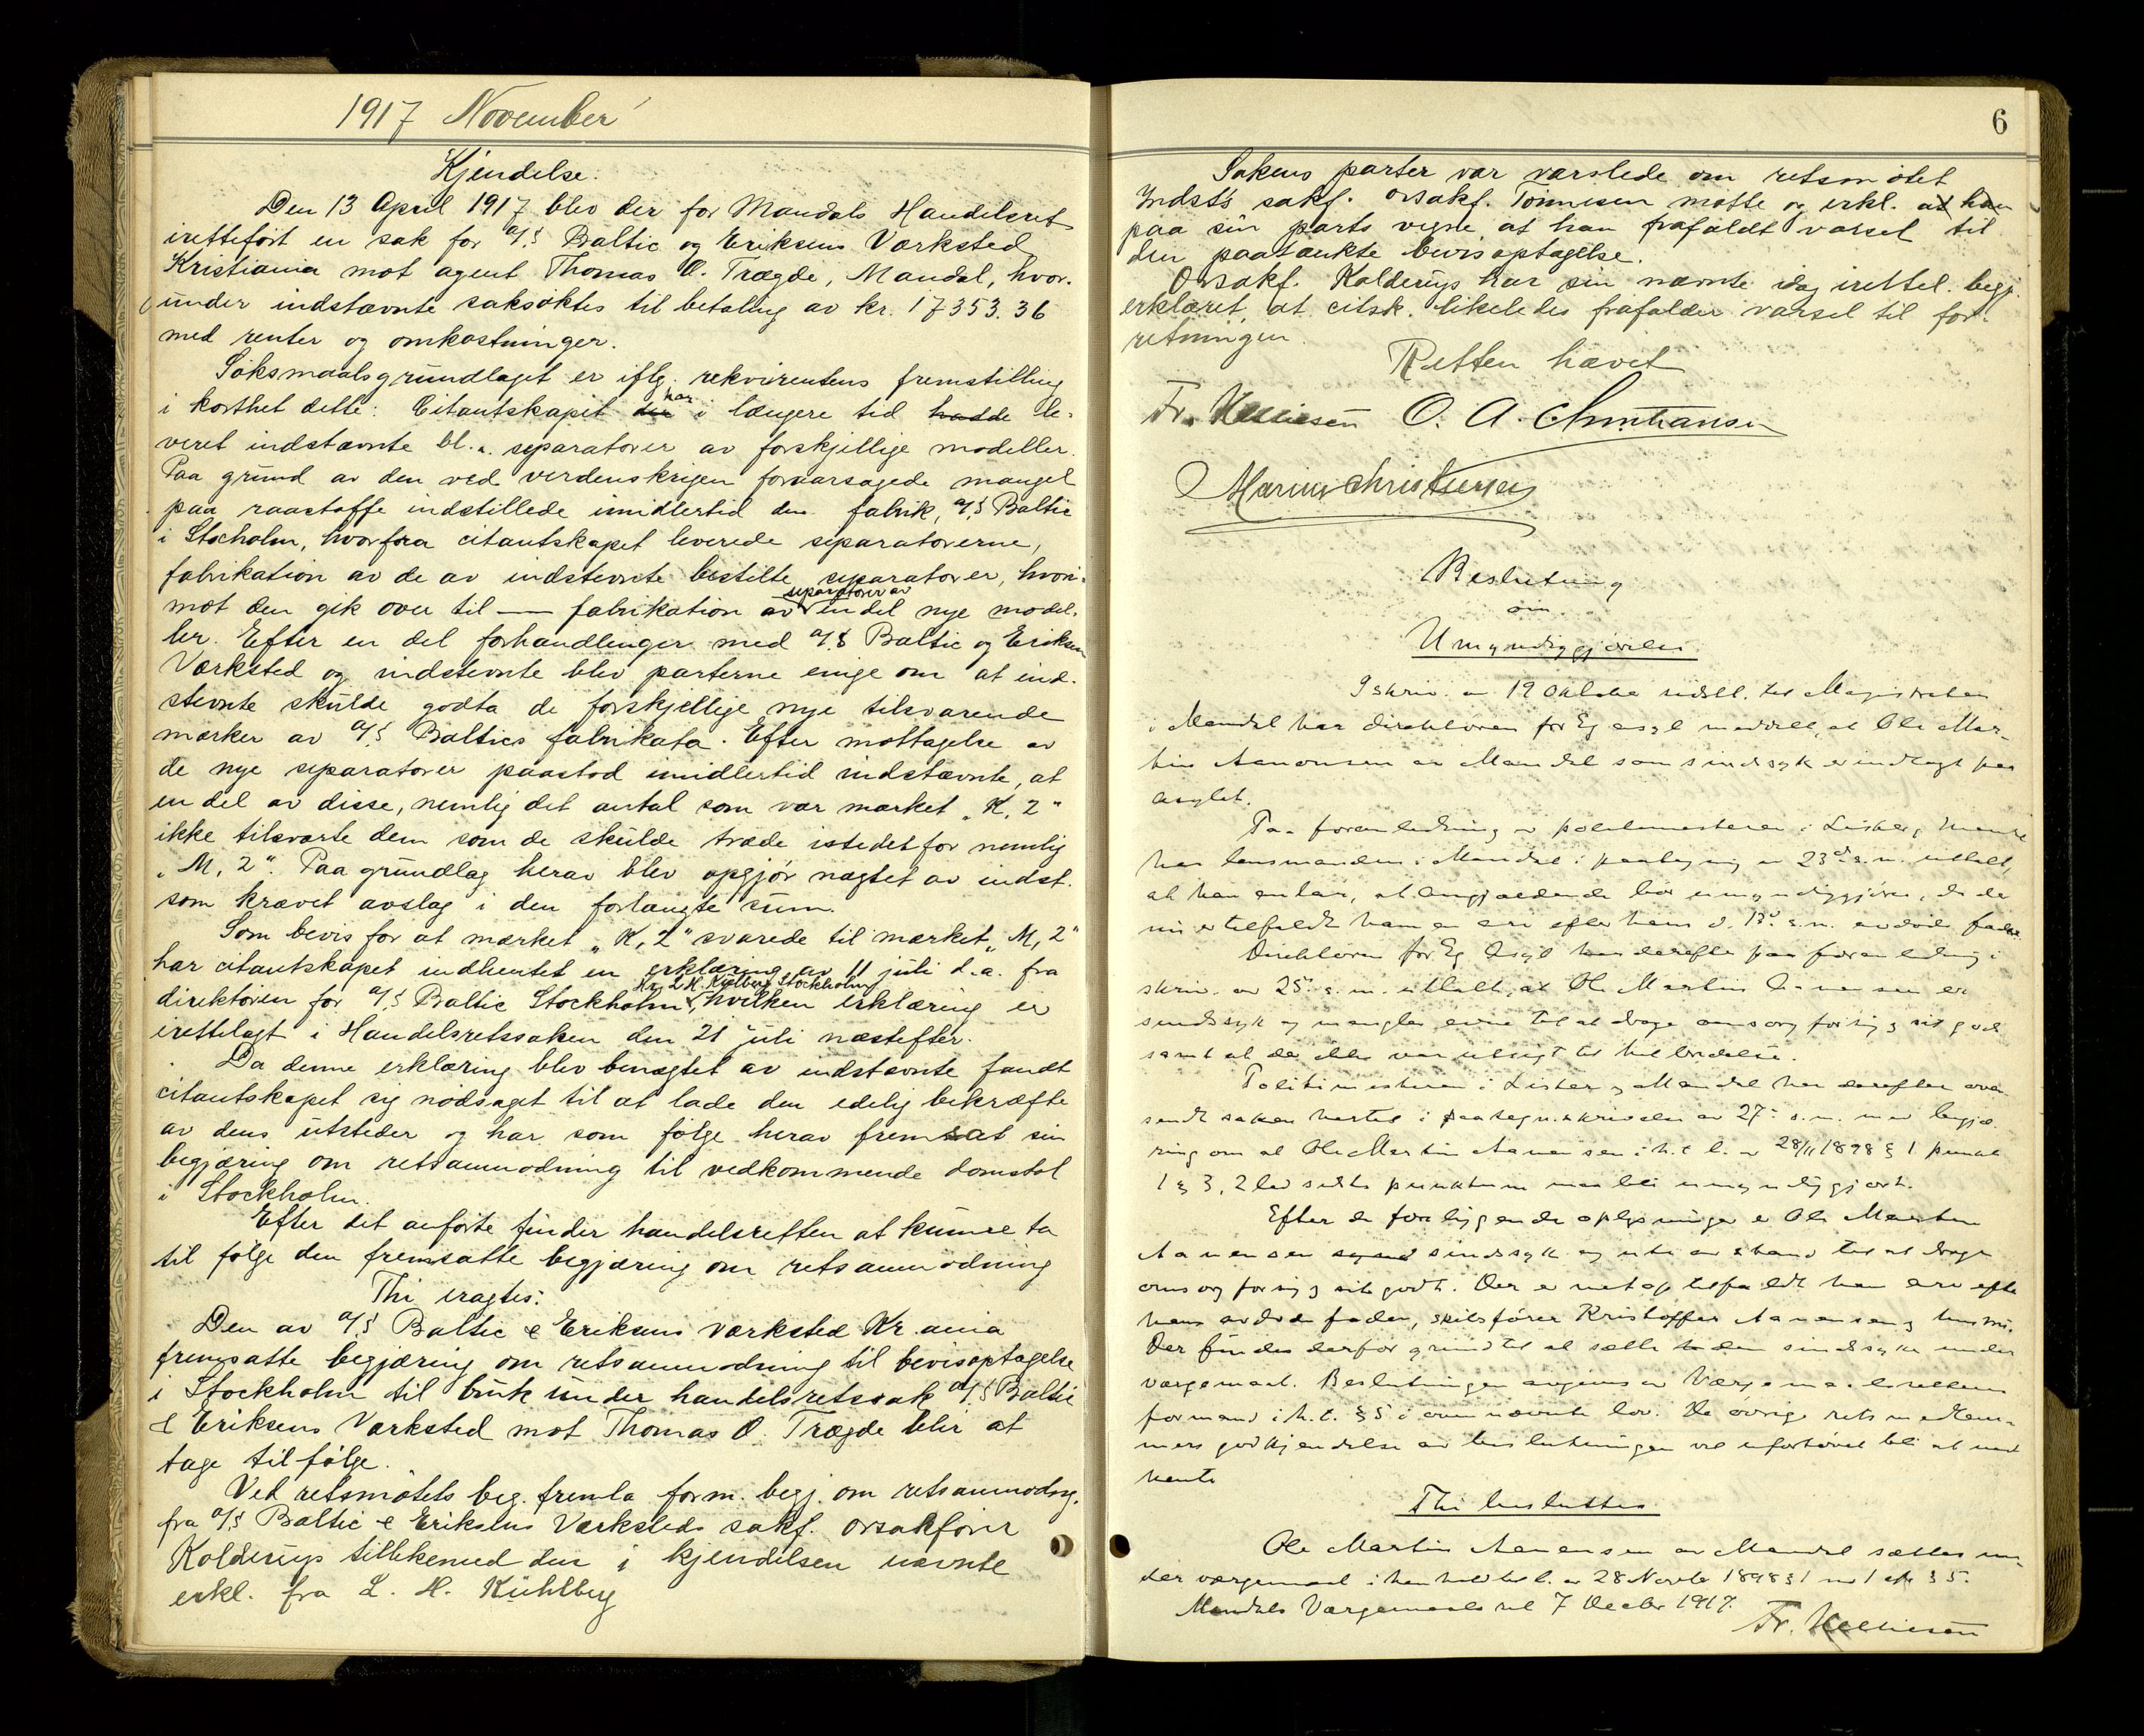 1917 November
Kjendelse.
Den 13 April 1917 blev der for Mandals Handelsret
iretteført en sak for A/S Baltic og Eriksens Værksted
Kristiania mot agent Thomas O. Trægde, Mandal, hvor-
under indstævnte saksøktes til betaling av kr. 17353.36
med renter og omkostninger.
Søksmaalsgrundlaget er iflg. rekvirentens fremstilling
i korthet dette: Citantskapet har i længere tid hadde le-
veret indstævnte bl.a. separatorer av forskjellige modeller.
Paa grund av den ved verdenskrigen foraarsagede mangel
paa raastoffe indstillede imidlertid den fabrik, A/S Baltic
i Stocholm, hvorfra citantskapet leverede separatorerne,
fabrikation av de av indstevnte bestilte separatorer, hvori-
mot den gik over til — fabrikation av separatorer av en del nye model-
ler. Efter en del forhandlinger med A/S Baltic og Eriksen
Værksted og indstevnte blev parterne enige om at ind-
stevnte skulde godta de forskjellige nye tilsvarende
mærker av A/S Baltics fabrikata. Efter mottagelse av
de nye separatorer paastod imidlertid indstævnte, at
en del av disse, nemlig det antal som var mærket „K, 2"
ikke tilsvarte dem som de skulde træde istedetfor nemlig
„M, 2". Paa grundlag herav blev opgjør nægtet av indst.
som krævet avslag i den forlangte sum.
Som bevis for at mærket „K, 2" svarede til mærket „M, 2"
har citantskapet indhentet en erklæring av 11 juli d.a. fra
direktøren for A/S Baltic Stockholm, Hr. L H. Kulberg Stockholm hvilken erklæring er
irettelagt i Handelsretssaken den 21 juli næstefter.
Da denne erklæring blev benægtet av indstævnte fandt
citantskapet sig nødsaget til at lade den edelig bekræfte
av dens utsteder og har som følge herav fremsat sin
begjæring om retsanmodning til vedkommende domstol
i Stockholm.
Efter det anførte finder handelsretten at kunne ta
til følge den fremsatte begjæring om retsanmodning
Thi eragtes:
Den av A/S Baltic & Eriksens værksted Kr.ania
fremsatte begjæring om retsanmodning til bevisoptagelse
i Stockholm til bruk under handelsretssak A/S Baltic
& Eriksens Værksted mot Thomas O. Trægde blir at
tage tilfølge.
Ved retsmøtets beg. fremla form. begj. om retsanmodng.
fra A/S Baltic & Eriksens Værksteds sakf. orsakfører
Kolderup tillikemed den i kjendelsen nævnte
erkl. fra L. H. Kühlberg
6
Sakens parter var varslede om retsmøtet
Indst's sakf. orsakf. Tønnesen møtte og erkl. at han
paa sin parts vegne at han frafaldt varsel til
den paatænkte bevisoptagelse.
Orsakf. Kolderup har sin nævnte idag irettel. begj.
erklæret, at citsk. likeledes frafalder varsel til for-
retningen.
Retten hævet
Fr. O. A. Christiansen
Marius Christensen
Beslutning
om
Umyndiggjørelse.
I skriv. av 19 Oktober sidstl. til Magistraten
i Mandal har direktøren for Eg asyl meddelt, at Ole Mar-
tin Aanensen av Mandal som sindssyk er indlagt paa
asylet.
Paa foranledning av politimesteren i Lister og Mandal
har lensmanden i Mandal i paategning av 23de s.m. uttalt,
at han antar, at angjældende bør umyndiggjøres, da der
nu er tilfaldt ham en arv efter hans d. 13de s.m. avdøde fader.
Direktøren for Eg Asyl har derefter paa foranledning i
skriv. av 25. s.m. uttalt, at Ole Martin Aanensen er
sindssyk og mangler evne til at drage omsorg for sig og sit gods
samt at der ikke var utsigt til helbredelse.
Politimesteren i Lister og Mandal har derefter over-
sendt saken hertil i paategn.skrivelse av 27. s.m. med begjæ-
ring om at Ole Martin Aanensen i h.t. l. av 28/11 1898 § 1 punkt
1 § 3, 2 led sidste punktum maa bli umyndiggjort.
Efter de foreliggende oplysninger er Ole Martin
Aanensen sindssyk og ute av stand til at drage
omsorg for sig og sit gods. Der er netop tilfaldt ham arv efter
hans avdøde fader, skibsfører Kristoffer Aanensen og hustru.
Der findes derfor grund til at sætte den sindssyke under
værgemaal. Beslutningen avgives av Værgemaalsrettens
formand i h.t. § 5 i ovennævnte lov. De øvrige retsmedlem-
mers godkjendelse av beslutningen vil ufortøvet bli at ind-
hente
Thi besluttes
Ole Martin Aanensen av Mandal sættes un-
der værgemaal i henhold til l. av 28 Novbr 1898 § 1 no 1 cfr § 5.
Mandals Værgemaalsret 7 Decbr 1917.
Fr.